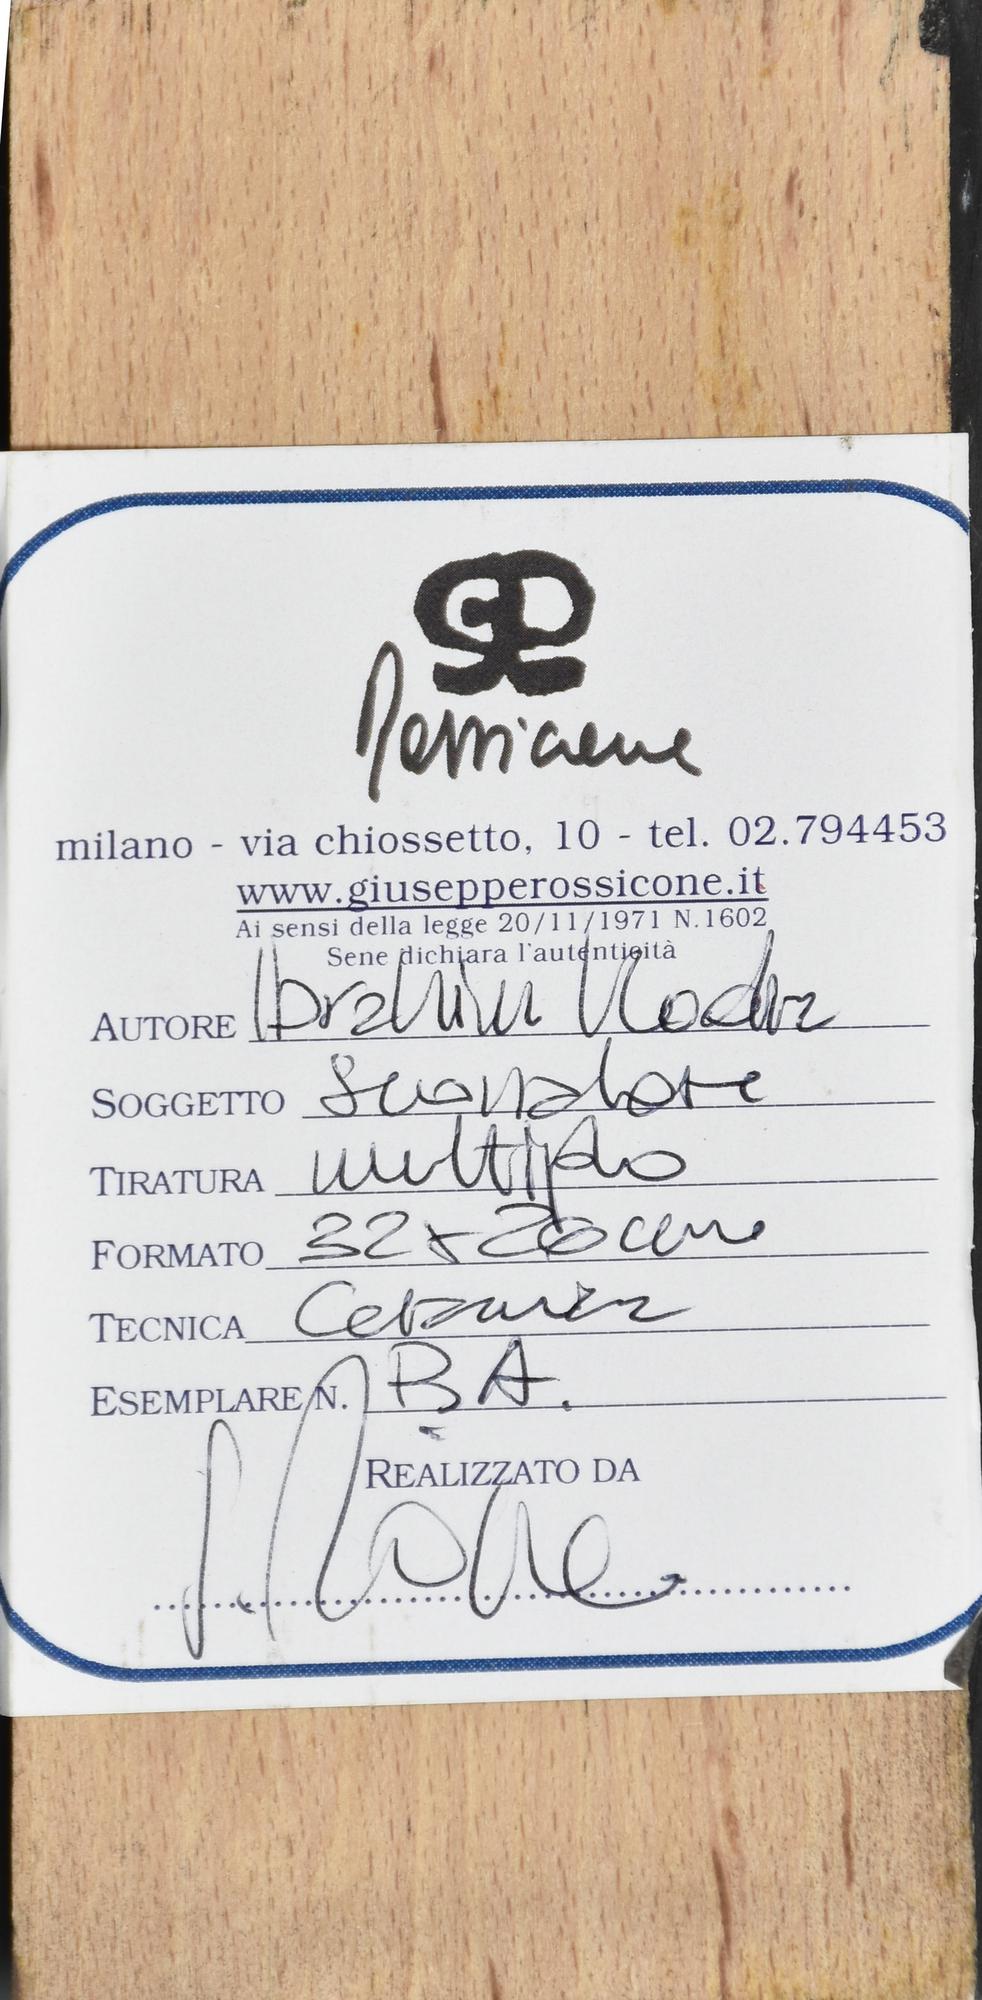 Rossicone
milano - via chiossetto, 10 - tel. 02.794453
www.giusepperossicone.it
Ai sensi della legge 20/11/1971 N.1602
Sene dichiara l'autenticità
AUTORE Ibrahim Kodra
SOGGETTO Suonatore
TIRATURA multiplo
FORMATO 32x20 cm
TECNICA Ceramica
ESEMPLARE N. B A.
REALIZZATO DA